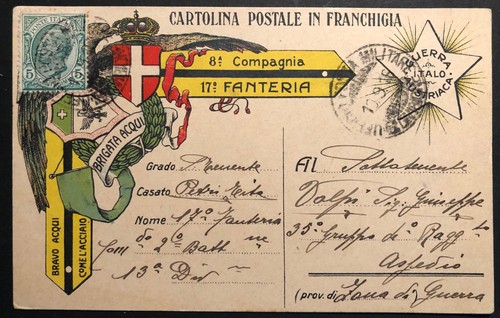 CARTOLINA POSTALE IN FRANCHIGIA
POSTE ITALIANE
5 5
8ª Compagnia
17º FANTERIA
GUERRA
ITALO
AUSTRIACA
BRIGATA ACQUI
BRAVO ACQUI
COME L'ACCIAIO
Grado Tenente
Casato Petri
Nome 17º Fanteria
Com do 2º Batt ne
13ª Div ne
Al Sottotenente
Volpi Sig. Giuseppe
35º Gruppo di Ragg to
Assedio
(prov. di Zona di Guerra